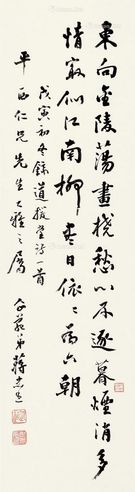 東向金陵蕩畫橈愁心不逐暮煙消多
情最似江南柳日依依為六朝
戊寅初冬錄道援堂詩一首
平西仁兄先生大雅之屬
弟蔣